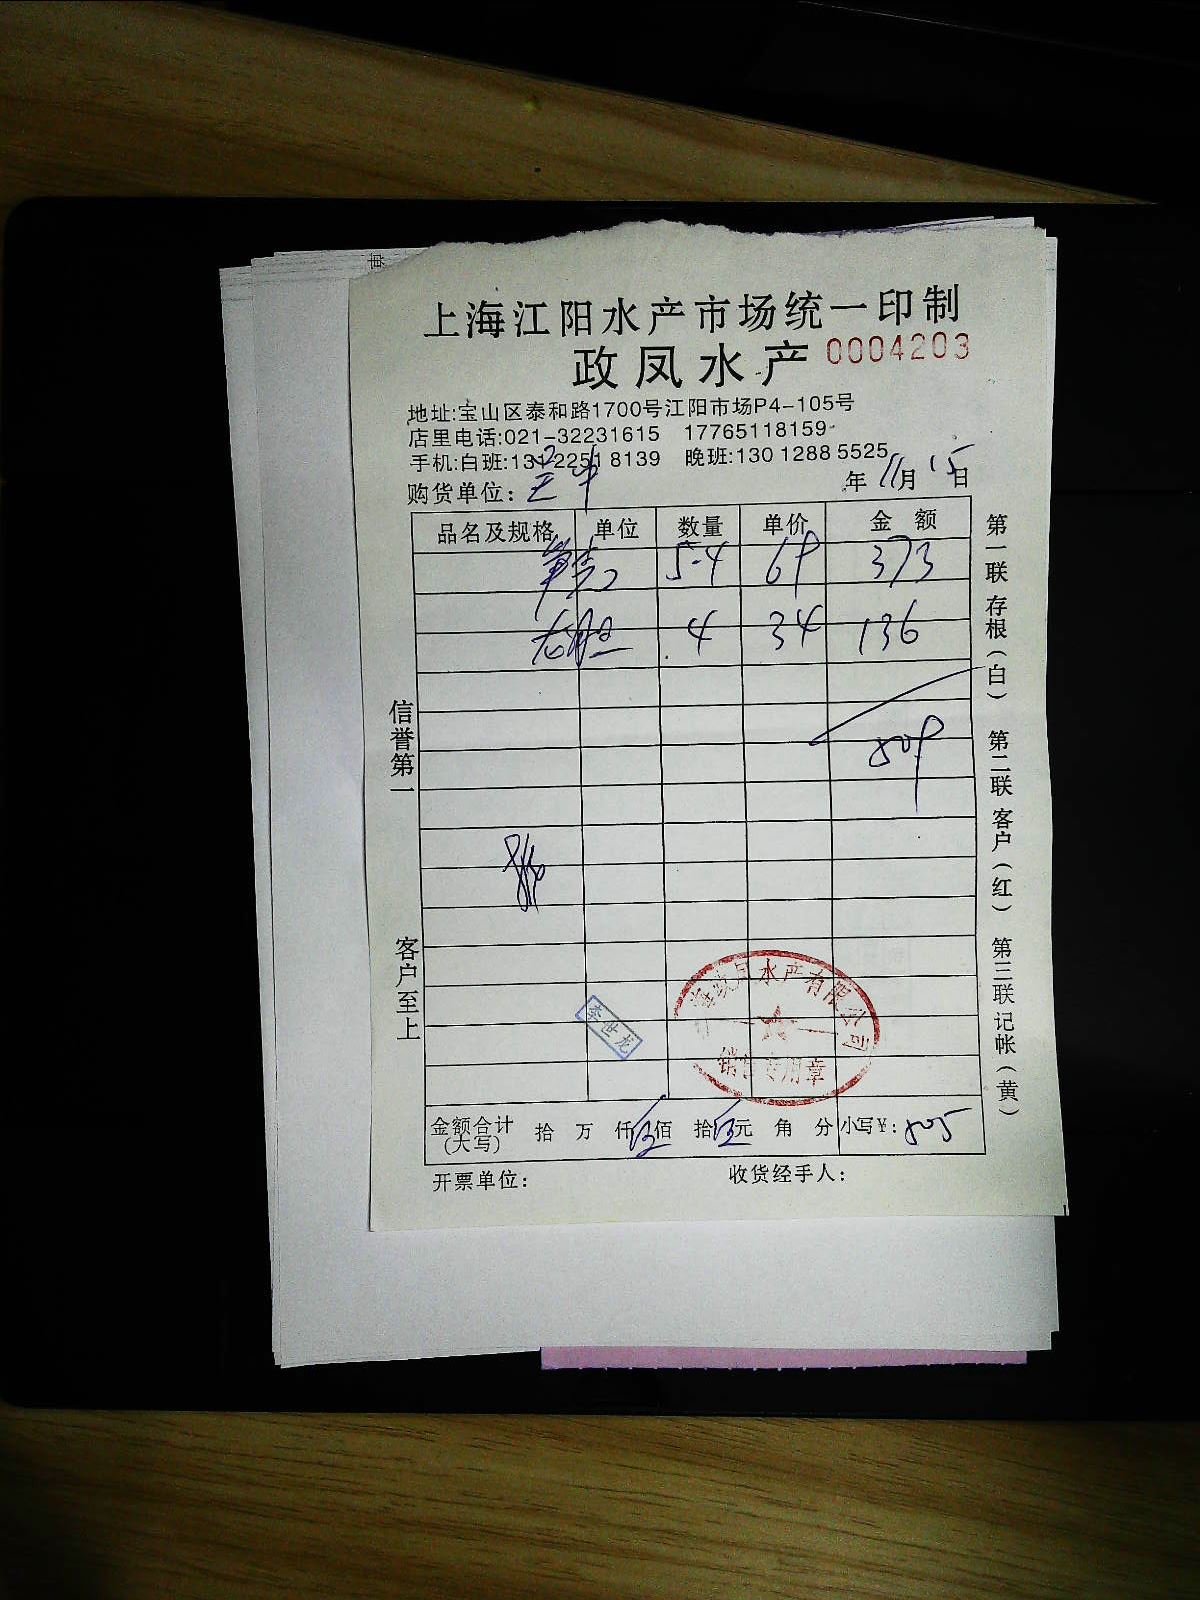 上海江阳水产市场统一印制
政凤水产 0004203
地址:宝山区泰和路1700号江阳市场P4-105号
店里电话:021-32231615 17765118159
手机:白班:131 2251 8139 晚班:130 1288 5525
购货单位: 年 11月 15日
品名及规格 单位 数量 单价 金额
5.4 69 373
龙胆 4 34 136
509
信誉第一
客户至上
第一联存根(白) 第二联客户(红) 第三联记帐(黄)
海政凤水产有限公司
销售专用章
李世龙
金额合计(大写) 拾 万 仟 伍佰 拾 伍元 角 分 小写¥: 505
开票单位: 收货经手人: